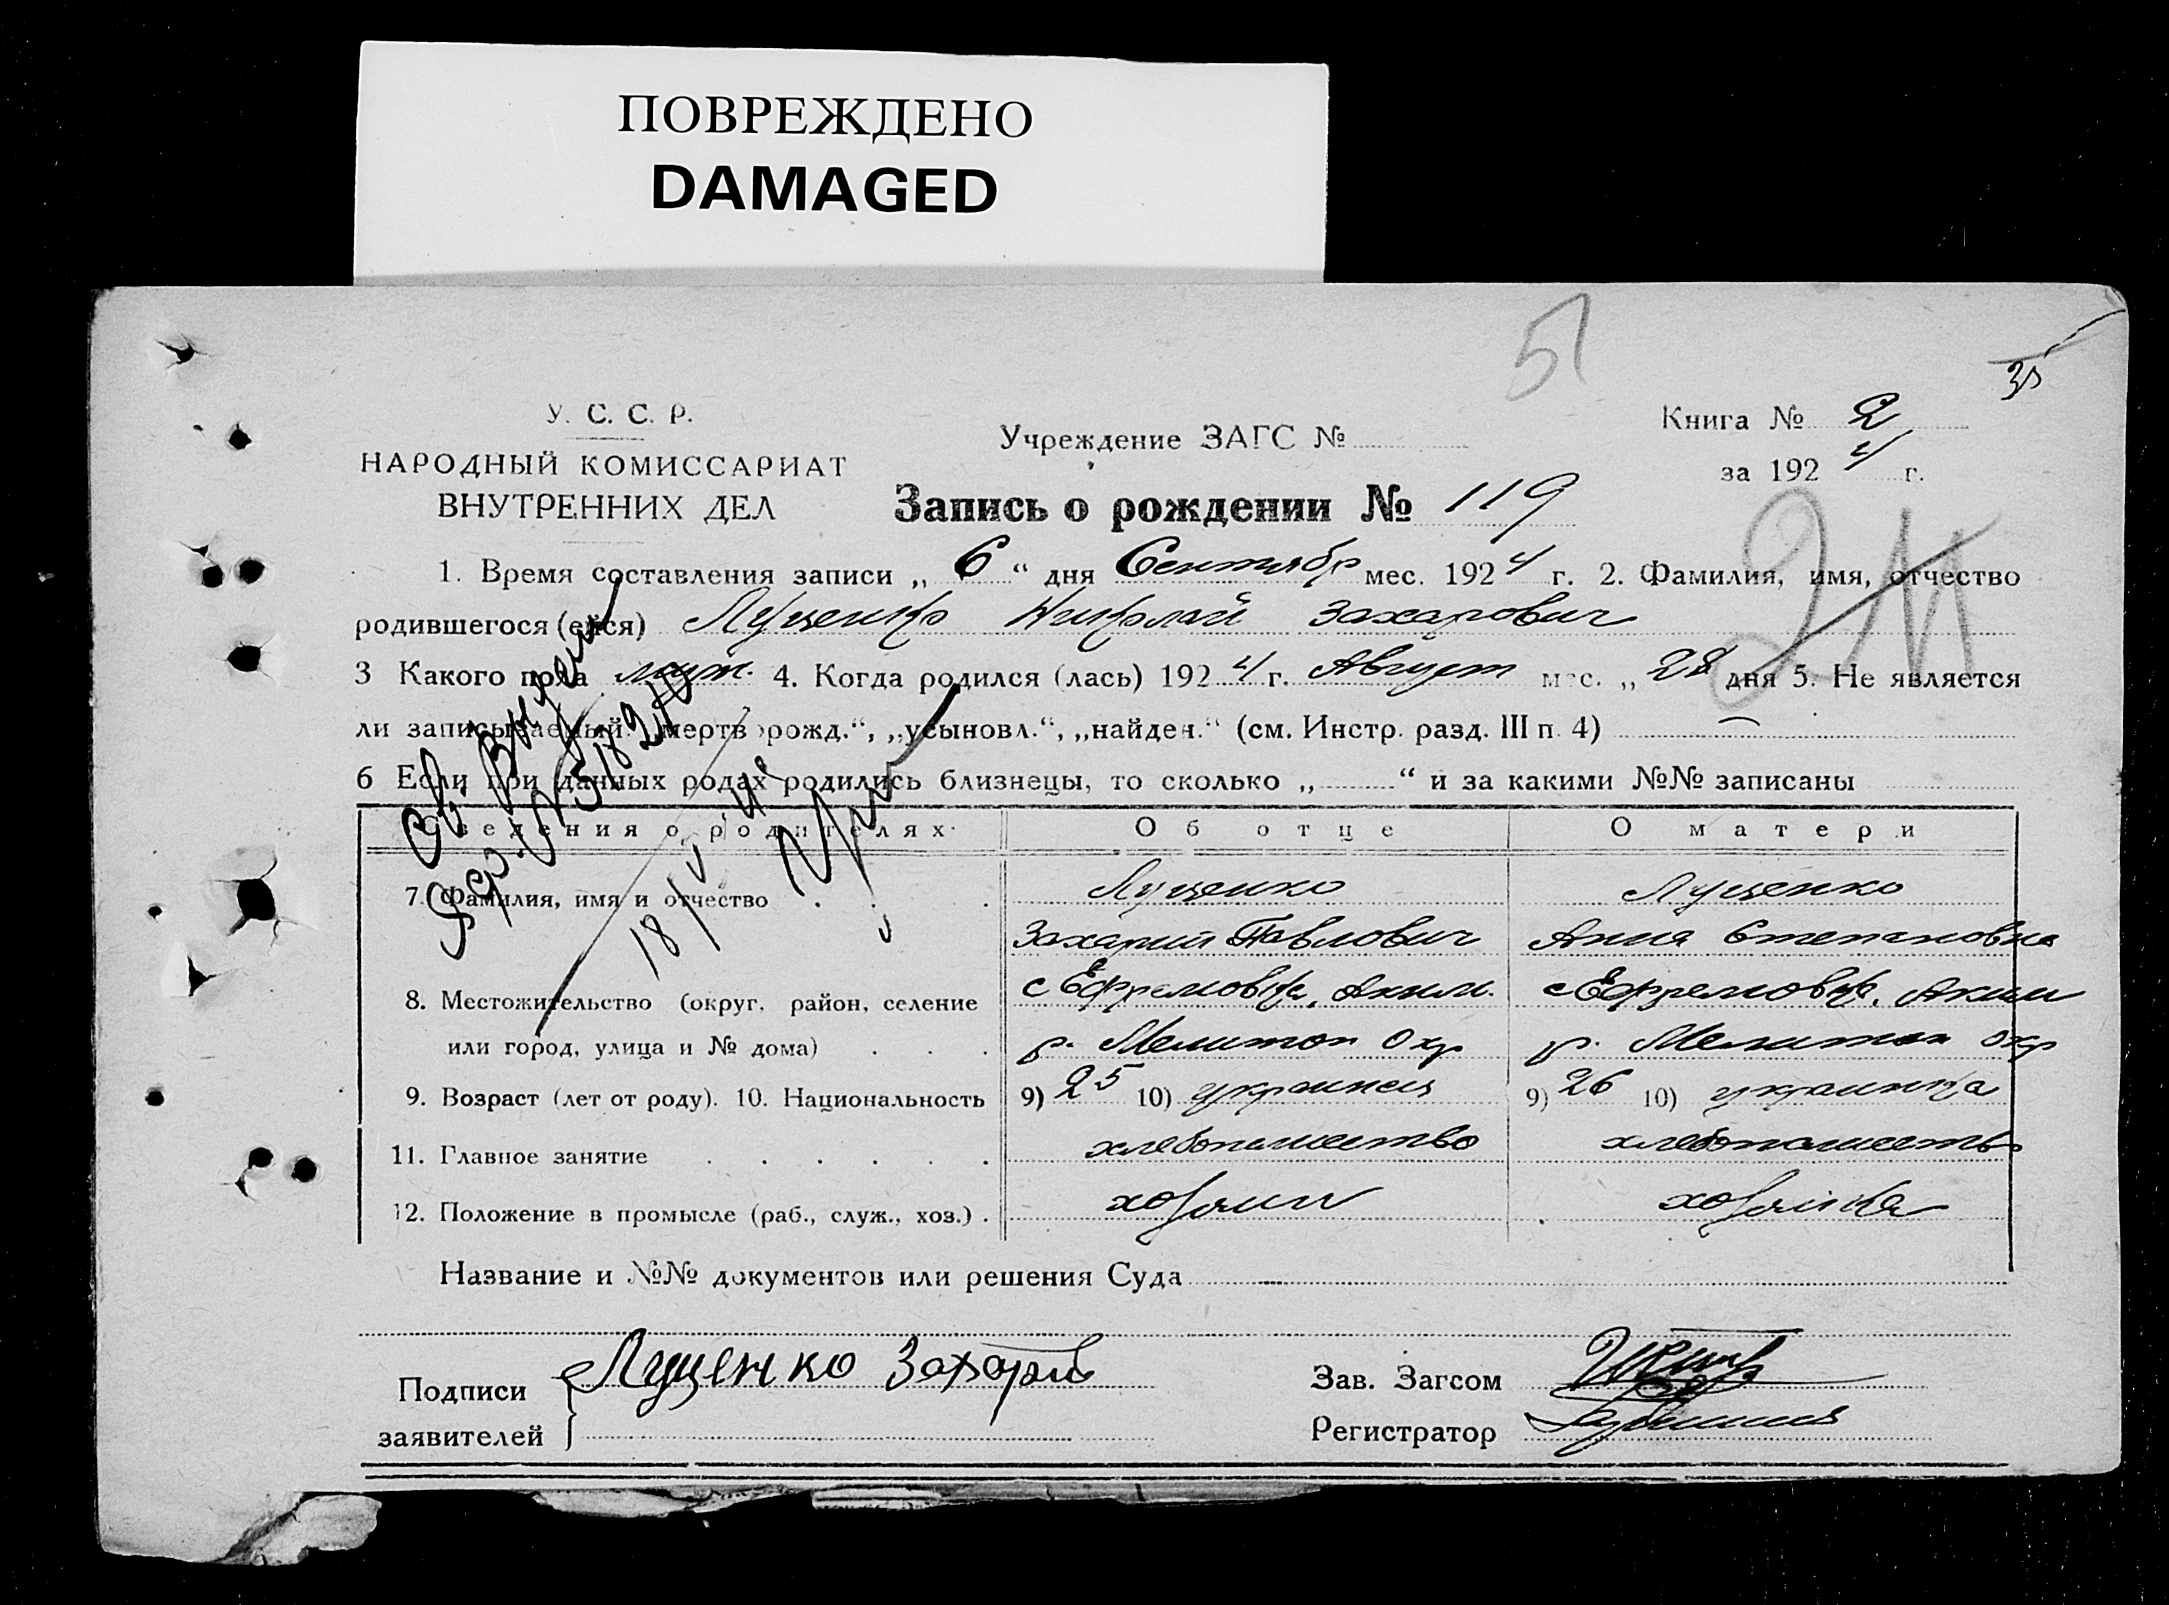 ПОВРЕЖДЕНО
DAMAGED
51
35
У. С. С. Р.
НАРОДНЫЙ КОМИССАРИАТ
ВНУТРЕННИХ ДЕЛ
Учреждение ЗАГС №
Книга № 2
за 1924 г.
Запись о рождении № 119
1. Время составления записи „ 6 “ дня Сентябр мес. 1924 г. 2. Фамилия, имя, отчество
родившегося (ейся) Луценко Николай Захарович
3 Какого пола муж. 4. Когда родился (лась) 1924 г. Август мес. „ 28 дня 5. Не является
ли записываемый „мертворожд.“, „усыновл.“, „найден.“ (см. Инстр. разд. III п. 4) —
6 Если при данных родах родились близнецы, то сколько „ “ и за какими №№ записаны
Сведения о родителях
Об отце
О матери
7. Фамилия, имя и отчество
Луценко
Захарий Павлович
Луценко
Анна Степановна
8. Местожительство (округ, район, селение
или город, улица и № дома)
с Ефремовка, Аким.
р. Мелитоп Окр
с Ефремовка, Аким
р. Мелитоп Окр
9. Возраст (лет от роду). 10. Национальность
9) 25 10) украинец
9) 26 10) украинка
11. Главное занятие
хлебопашество
хлебопашеств
12. Положение в промысле (раб., служ., хоз.)
хозяин
хозяйка
Название и №№ документов или решения Суда —
Подписи
заявителей
Луценко Захарій
Зав. Загсом
Регистратор